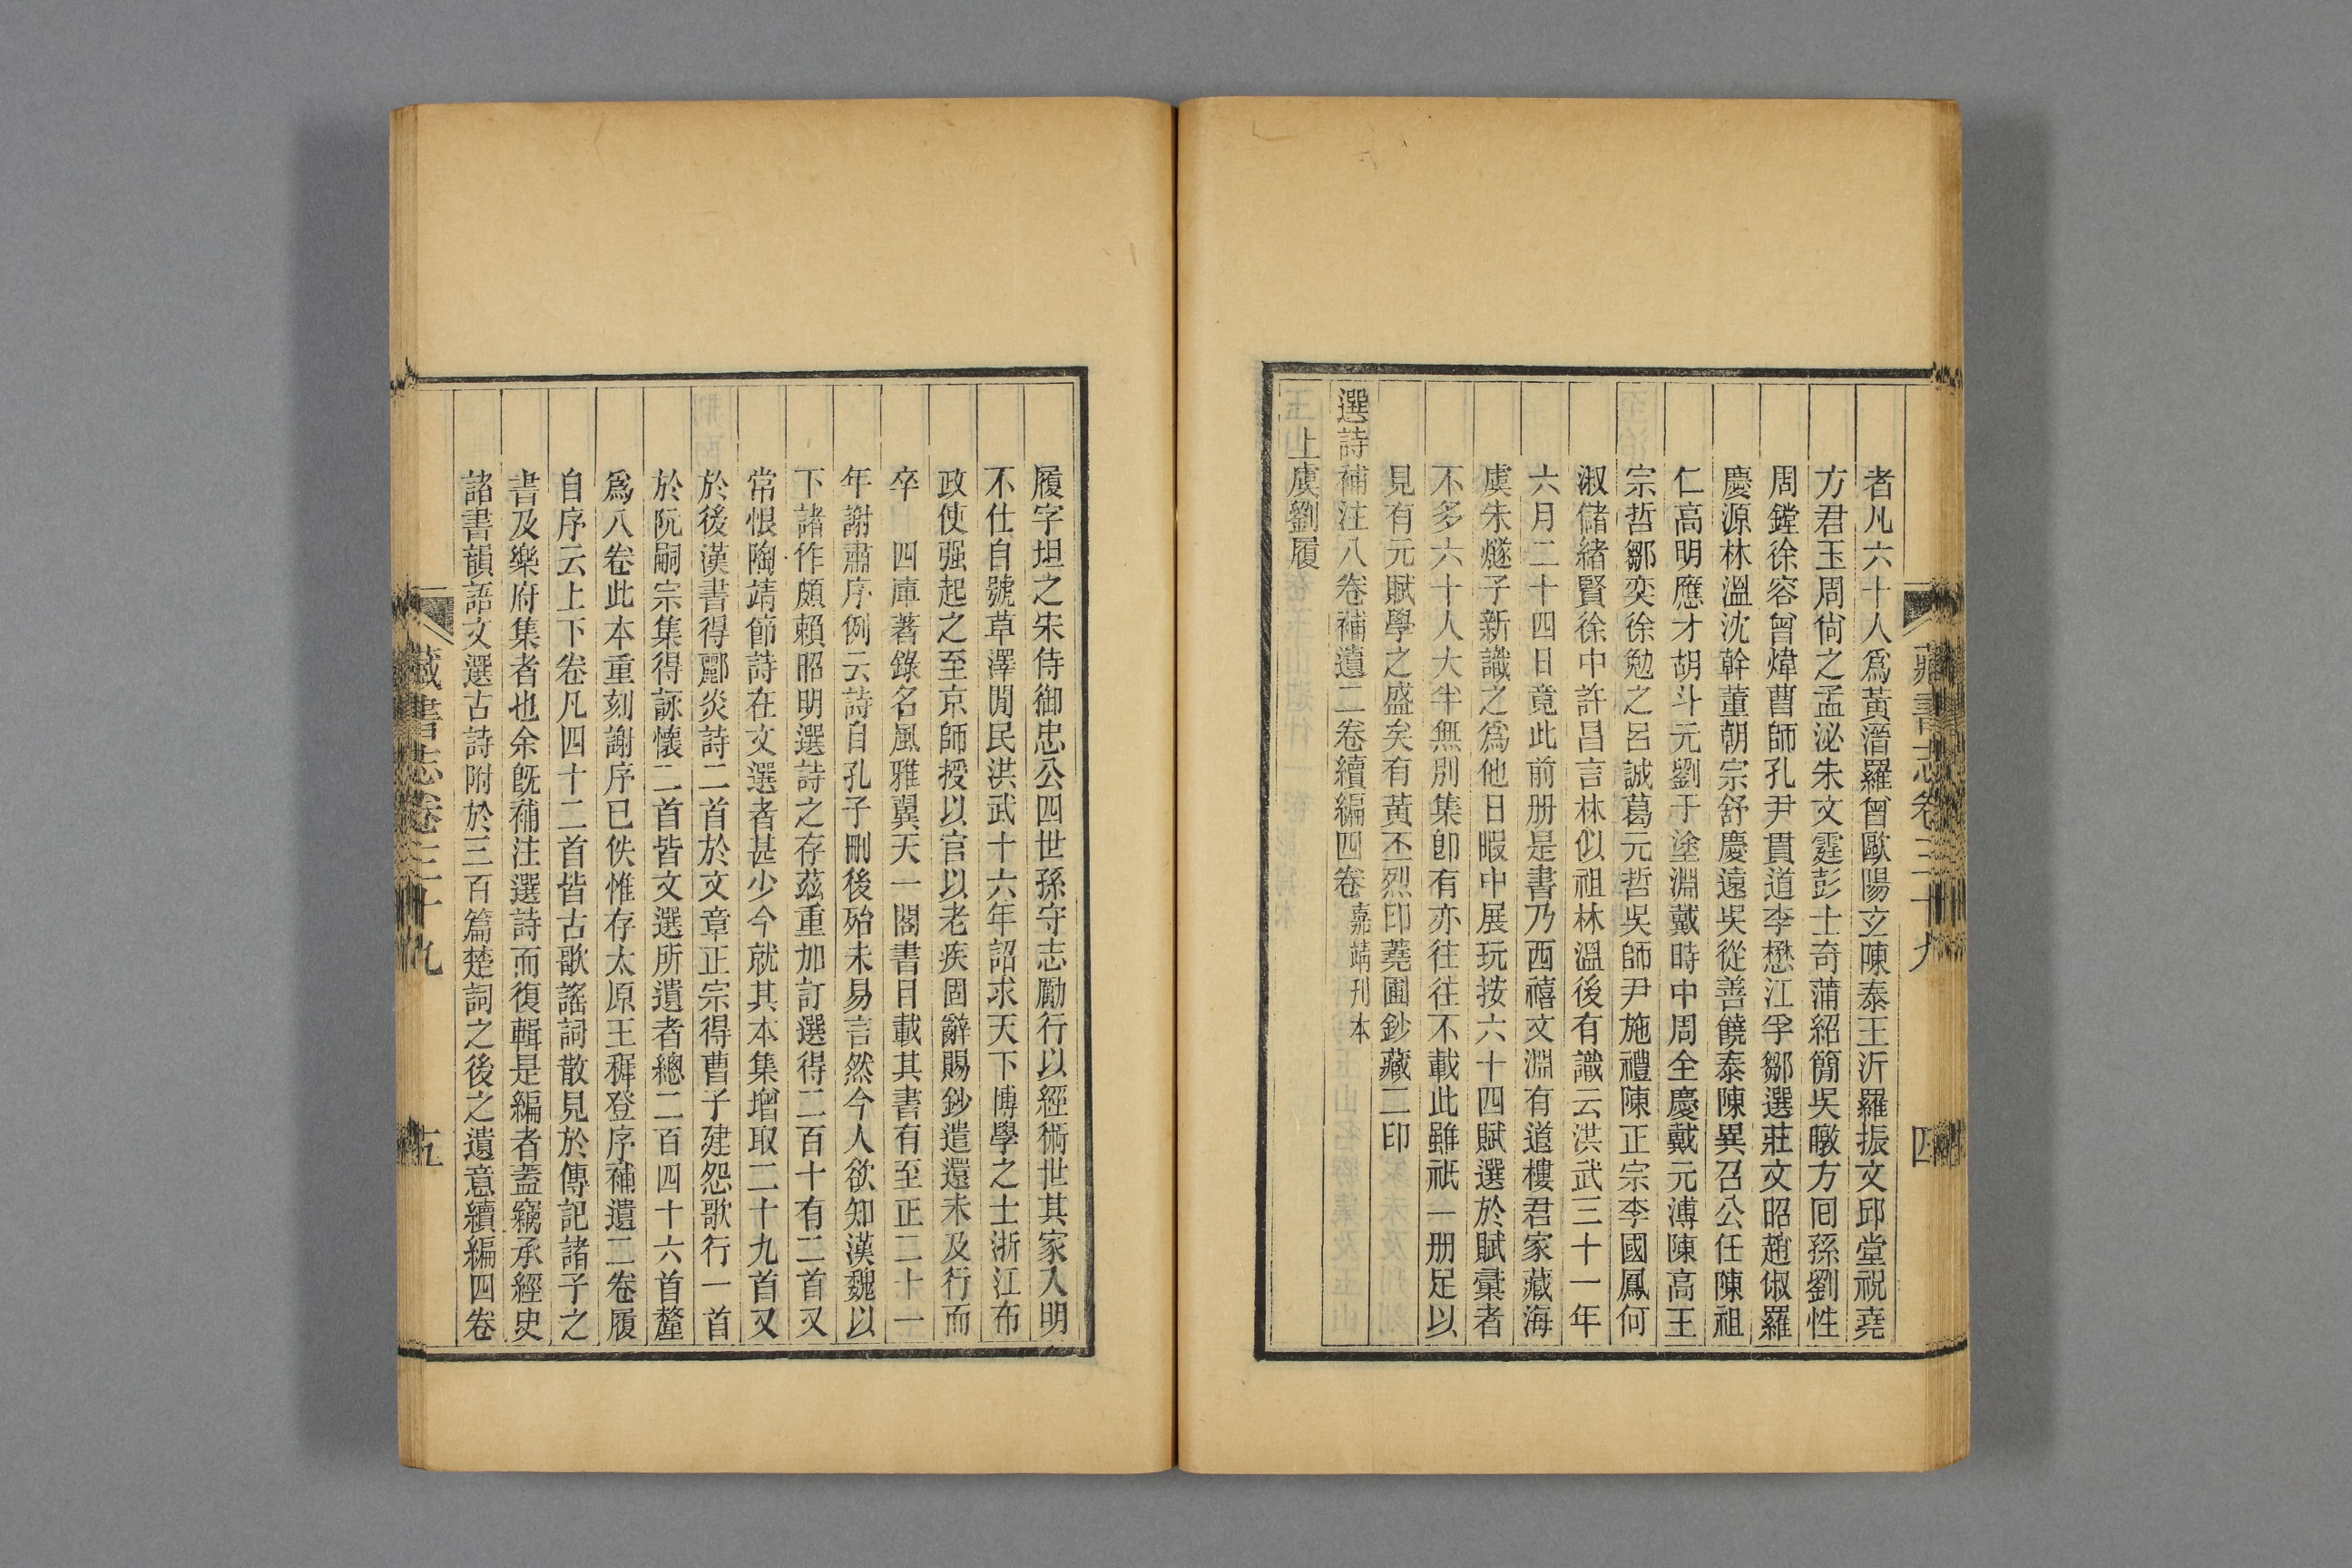 藏書志卷三十九
四
者凡六十人爲黃溍羅曾歐陽玄陳泰王沂羅振文邱堂祝堯
方君玉周尙之孟泌朱文霆彭士奇蒲紹簡吳暾方囘孫劉性
周鏜徐容曾煒曹師孔尹貫道李懋江孚鄒選莊文昭趙俶羅
慶源林溫沈幹董朝宗舒慶遠吳從善饒泰陳異召公任陳祖
仁高明應才胡斗元劉于塗淵戴時中周全慶戴元溥陳高王
宗哲鄒奕徐勉之呂誠葛元哲吳師尹施禮陳正宗李國鳳何
淑儲緒賢徐中許昌言林似祖林溫後有識云洪武三十一年
六月二十四日竟此前册是書乃西禧文淵有道樓君家藏海
虞朱燧子新識之爲他日暇中展玩按六十四賦選於賦彙者
不多六十人大半無別集卽有亦往往不載此雖祇一册足以
見有元賦學之盛矣有黃丕烈印蕘圃鈔藏二印
選詩補注八卷補遺二卷續編四卷 嘉靖刊本
上虞劉履
履字坦之宋侍御忠公四世孫守志勵行以經術世其家入明
不仕自號草澤閒民洪武十六年詔求天下博學之士浙江布
政使强起之至京師授以官以老疾固辭賜鈔遣還未及行而
卒 四庫著錄名風雅翼天一閣書目載其書有至正二十一
年謝肅序例云詩自孔子刪後殆未易言然今人欲知漢魏以
下諸作頗賴昭明選詩之存茲重加訂選得二百十有二首又
常恨陶靖節詩在文選者甚少今就其本集增取二十九首又
於後漢書得酈炎詩二首於文章正宗得曹子建怨歌行一首
於阮嗣宗集得詠懷二首皆文選所遺者總二百四十六首釐
爲八卷此本重刻謝序已佚惟存太原王穉登序補遺二卷履
自序云上下卷凡四十二首皆古歌謠詞散見於傳記諸子之
書及樂府集者也余旣補注選詩而復輯是編者蓋竊承經史
諸書韻語文選古詩附於三百篇楚詞之後之遺意續編四卷
藏書志卷三十九
五